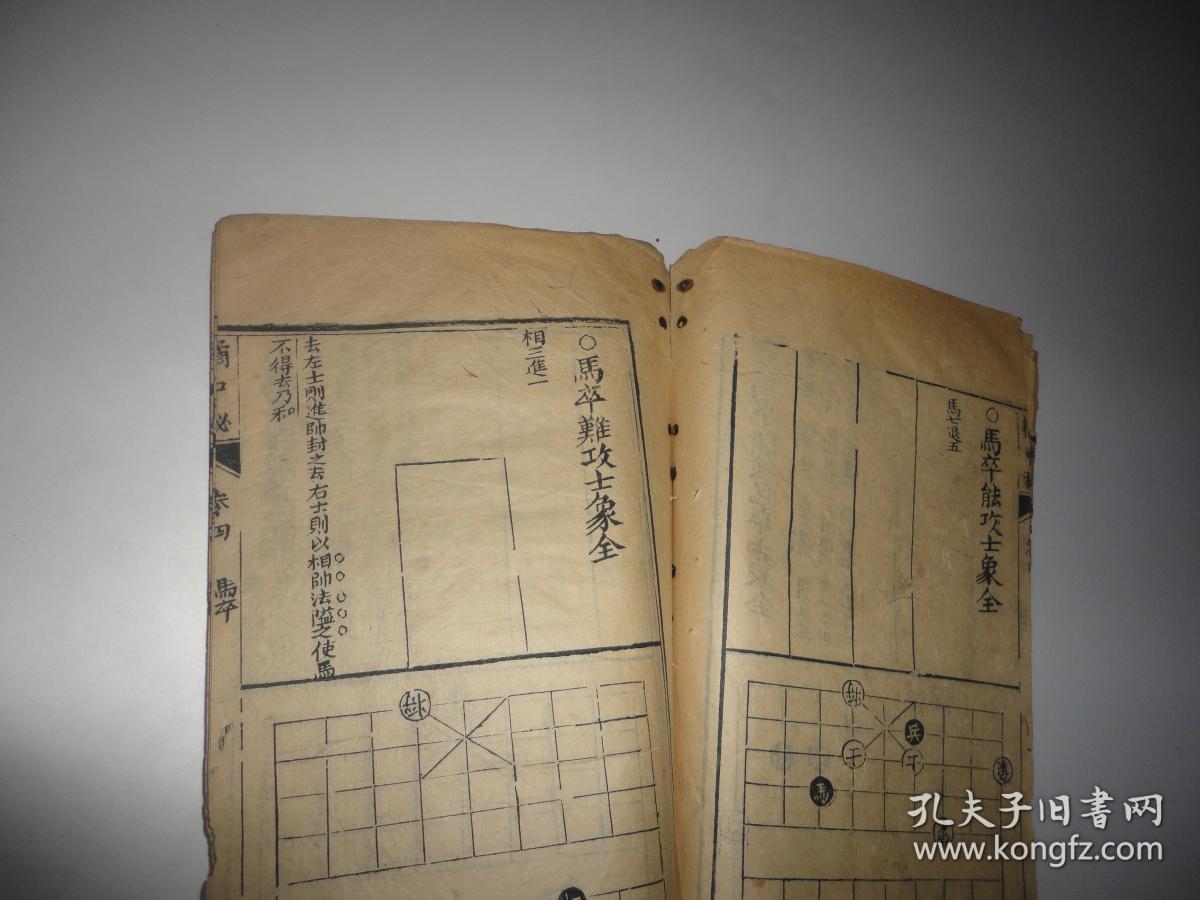 馬卒能攻士象全
馬七退五
兵
士
士
馬
○馬卒難攻士象全
相三進一
去左士則進帥封之去右士則以相帥法隘之使馬
不得去乃和
○○○○○
橘中秘
卷四
馬卒
孔夫子旧书网
www.kongfz.com